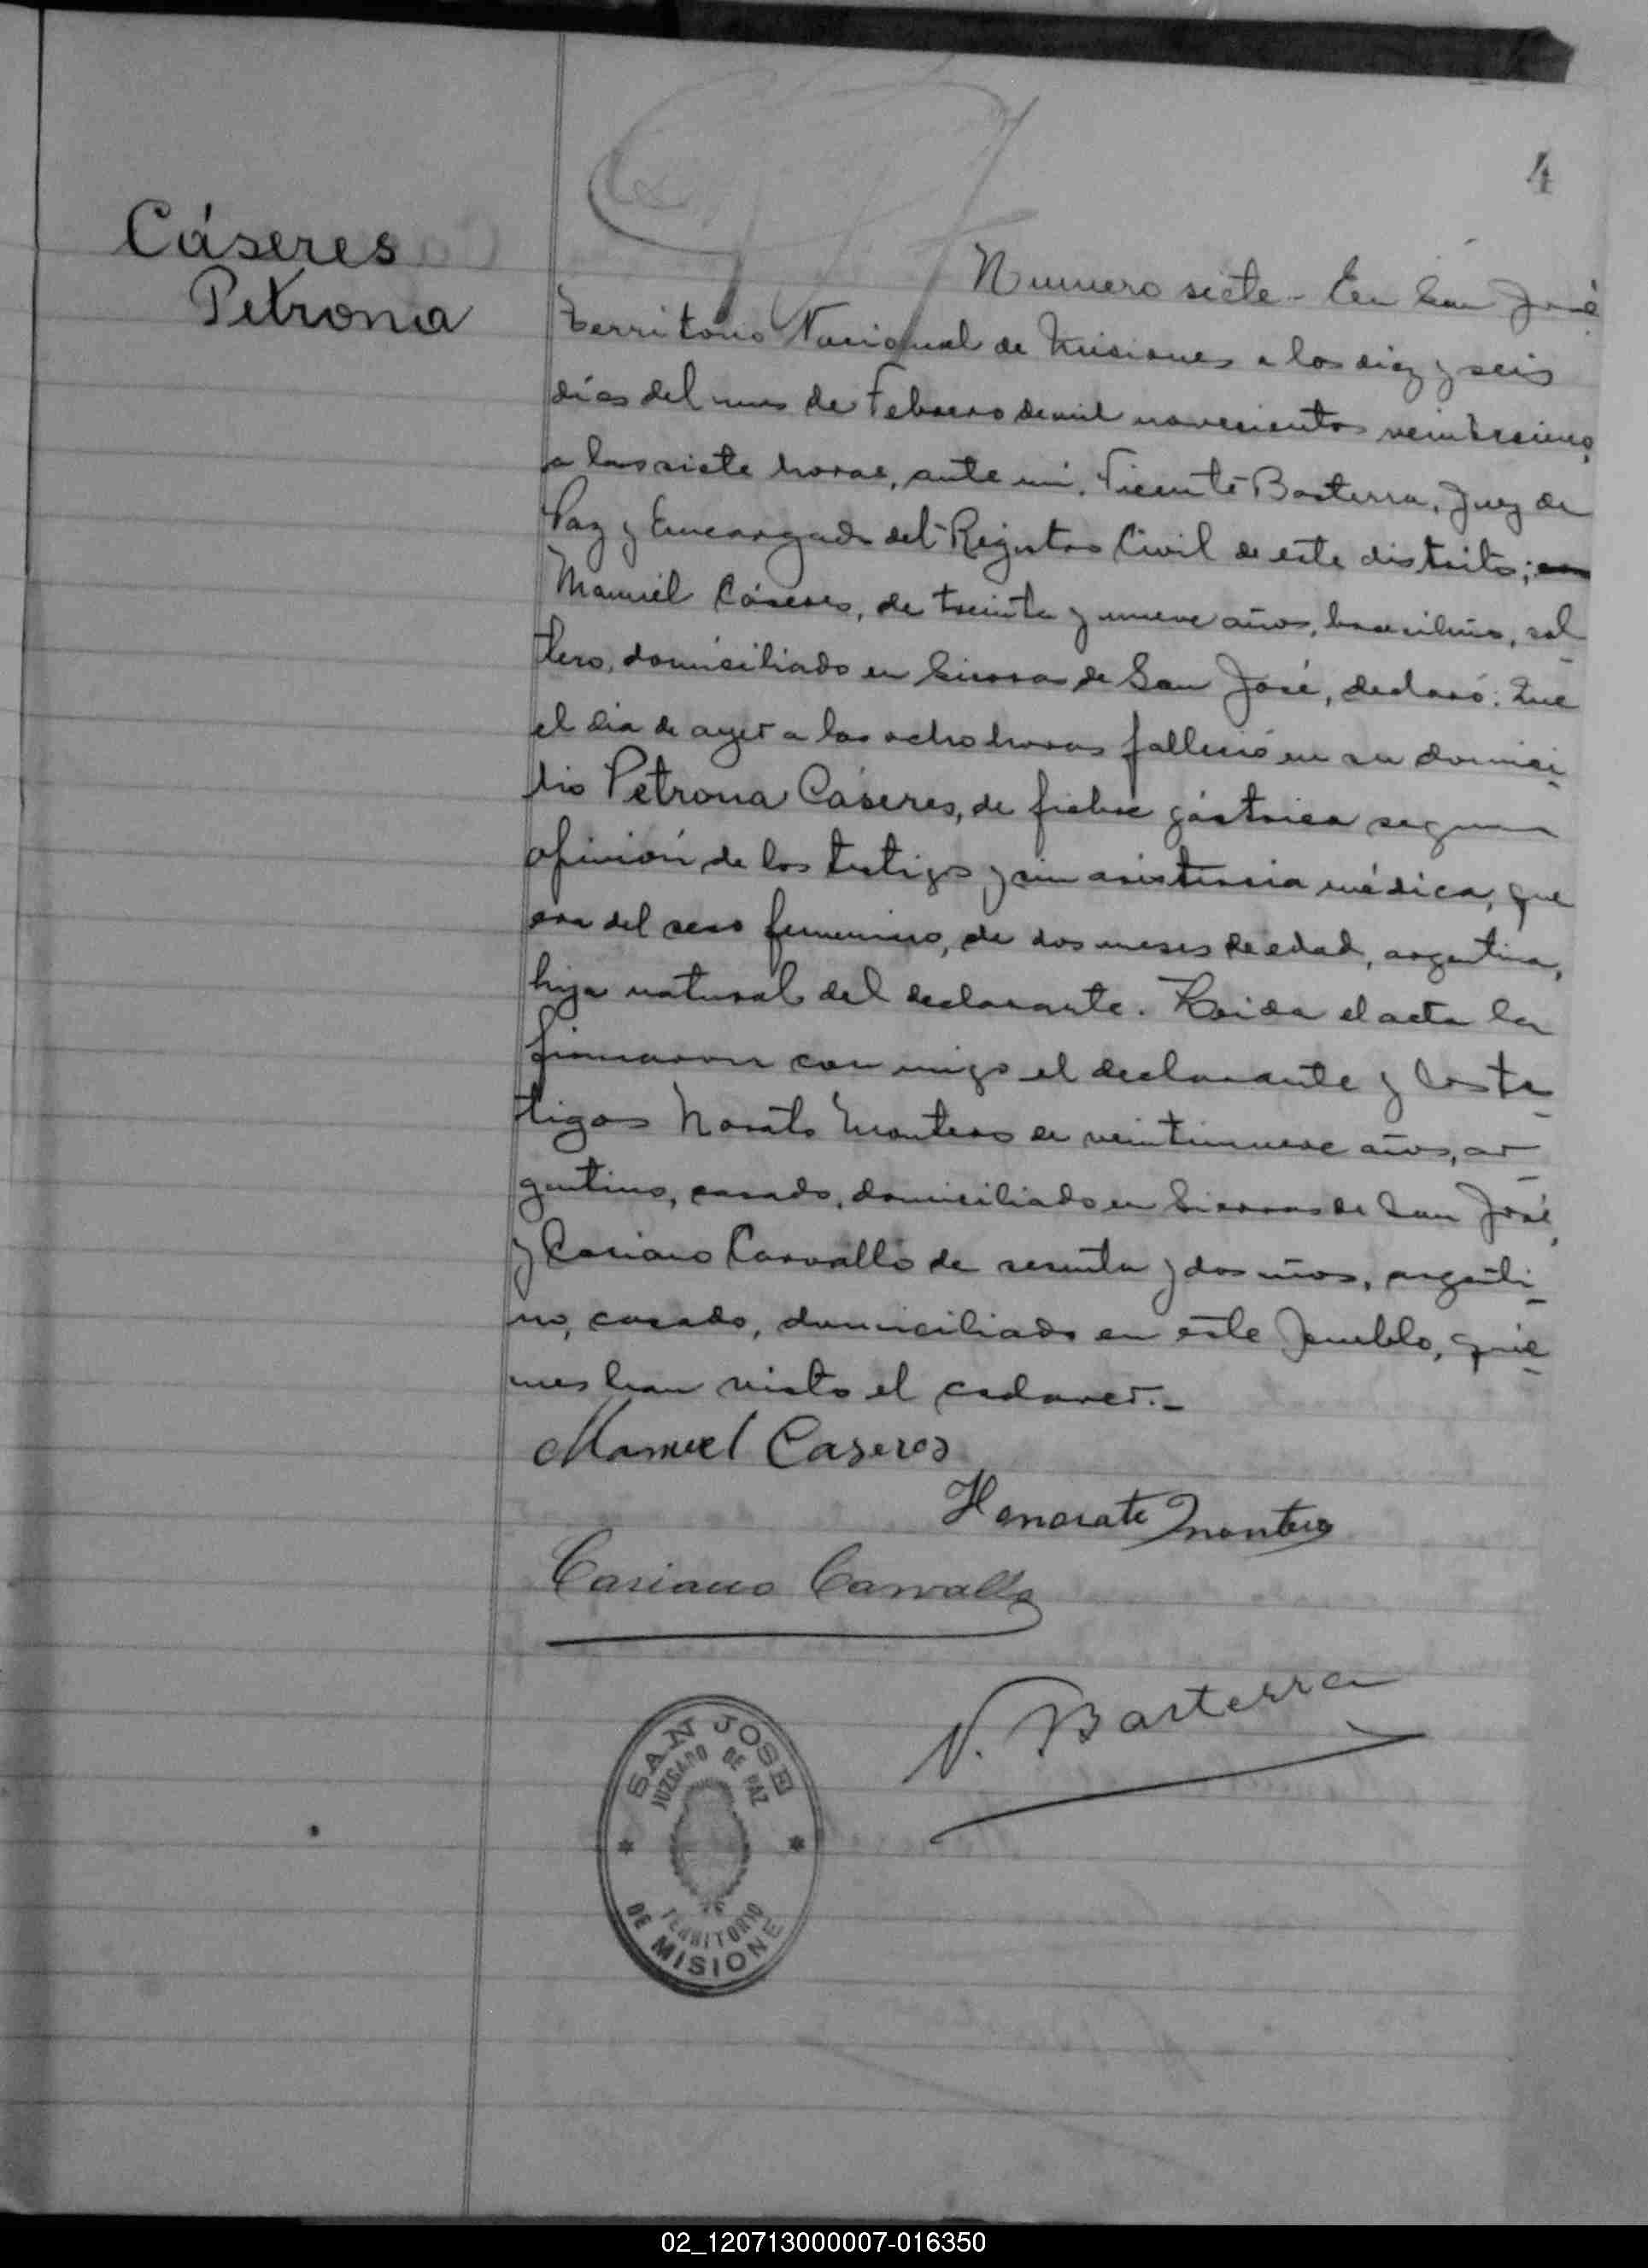 4
Cáseres
Petrona
Numero siete - En San José
Territorio Nacional de Misiones a los diez y seis
días del mes de Febrero de mil novecientos veinticinco,
a las siete horas, ante mí, Vicente Basterra, Juez de
Paz y Encargado del Registro Civil de este distrito;
Manuel Cáseres, de treinta y nueve años, brasileño, sol-
tero, domiciliado en Sierras de San José, declaró: Que
el día de ayer a las ocho horas falleció en su domici-
lio Petrona Cáseres, de fiebre gástrica segun
opinión de los testigos y sin asistencia médica, que
era del sexo femenino, de dos meses de edad, argentina,
hija natural del declarante. Leida el acta la
firmaron con migo el declarante y los te-
tigos Norato Montero de veintinueve años, ar-
gentino, casado, domiciliado en Sierras de San José,
y Casiano Carvallo de sesenta y dos años, argenti-
no, casado, domiciliado en este pueblo, quie-
nes han visto el cadaver.-
Manuel Caseres
Honorato Montero
Casiano Carvallo
V. Basterra
SAN JOSE
JUZGADO DE PAZ
TERRITORIO
DE MISIONE
02_120713000007-016350